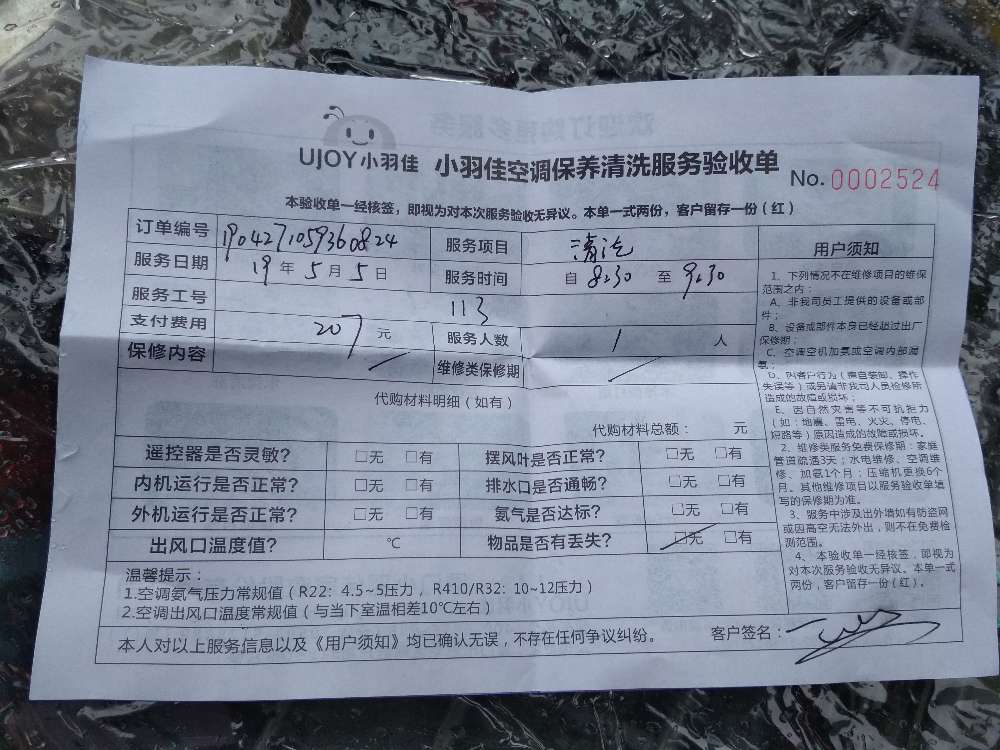 UJOY小羽佳 小羽佳空调保养清洗服务验收单 No. 0002524
本验收单一经核签，即视为对本次服务验收无异议。本单一式两份，客户留存一份（红）
订单编号 1904271059360824 服务项目 清洗
服务日期 19 年 5 月 5 日 服务时间 自 8:30 至 9:30
服务工号 113
支付费用 207 元 服务人数 1 人
保修内容 维修类保修期
代购材料明细（如有）
代购材料总额： 元
遥控器是否灵敏？ □无 □有 摆风叶是否正常？ □无 □有
内机运行是否正常？ □无 □有 排水口是否通畅？ □无 □有
外机运行是否正常？ □无 □有 氨气是否达标？ □无 □有
出风口温度值？ ℃ 物品是否有丢失？ □无 □有
温馨提示：
1.空调氨气压力常规值（R22：4.5~5压力，R410/R32：10~12压力）
2.空调出风口温度常规值（与当下室温相差10℃左右）
本人对以上服务信息以及《用户须知》均已确认无误，不存在任何争议纠纷。 客户签名：
用户须知
1、下列情况不在维修项目的维保
范围之内：
A、非我司员工提供的设备或部
件；
B、设备或部件本身已经超过出厂
保修期；
C、空调空机加氨或空调内部漏
氨；
D、因客户行为（擅自装卸、操作
失误等）或另请非我司人员检修所
造成的故障或损坏；
E、因自然灾害等不可抗拒力
（如：地震、雷电、火灾、停电、
短路等）原因造成的故障或损坏。
2、维修类服务免费保修期：家庭
管道疏通3天；水电维修、空调维
修、加氨1个月；压缩机更换6个
月。其他维修项目以服务验收单填
写的保修期为准。
3、服务中涉及出外墙如有防盗网
或因高空无法外出，则不在免费检
测范围。
4、本验收单一经核签，即视为
对本次服务验收无异议。本单一式
两份，客户留存一份（红）。